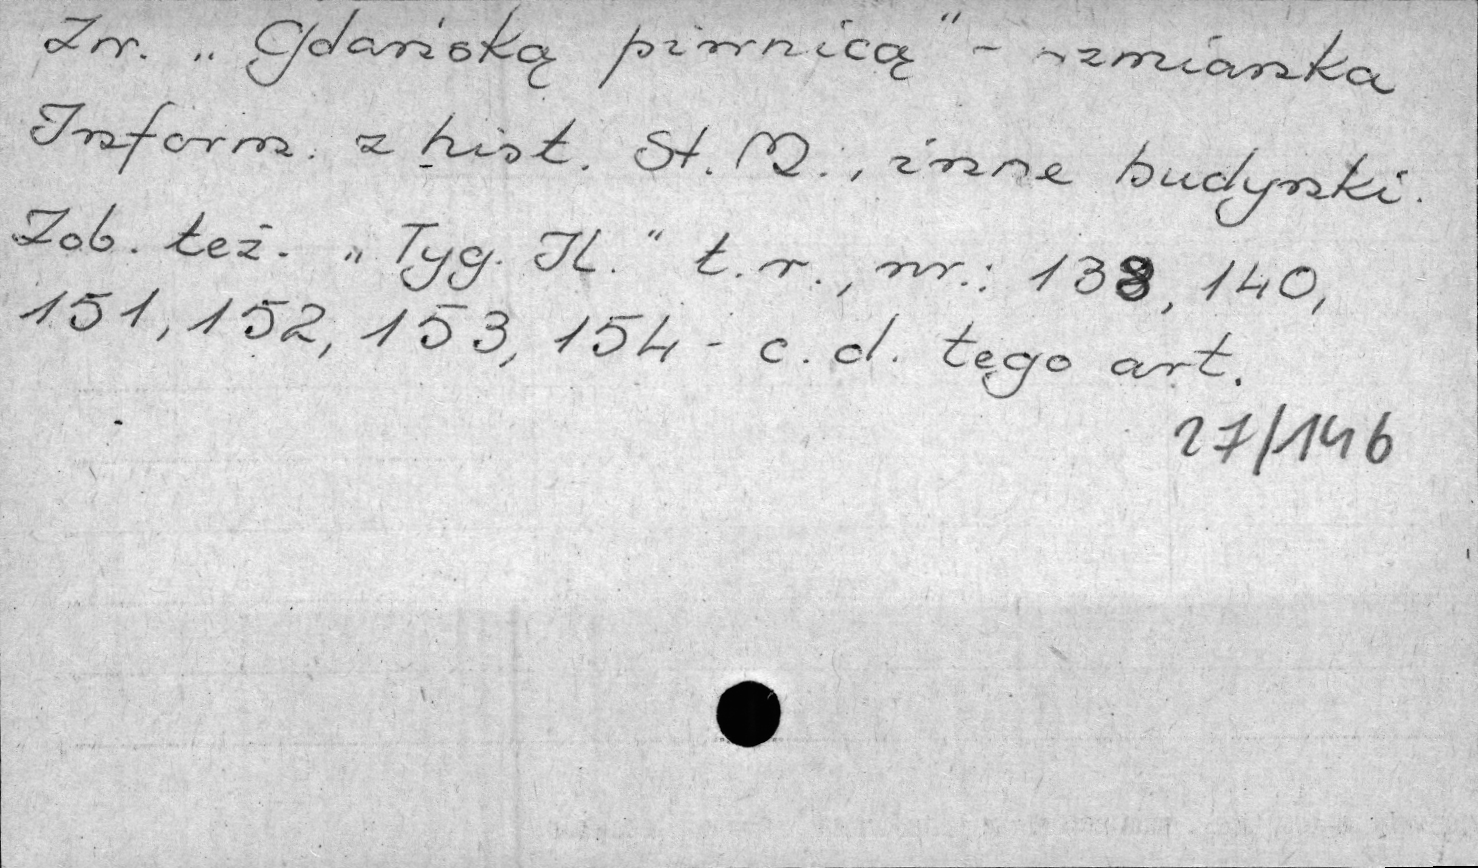 Zw. „Gdańską piwnicą" - wzmianka
Inform. z hist. St. M., inne budynki.
Zob. też. „Tyg. Il." t.r., nr.: 138, 140,
151, 152, 153, 154 - c.d. tego art.
27/146